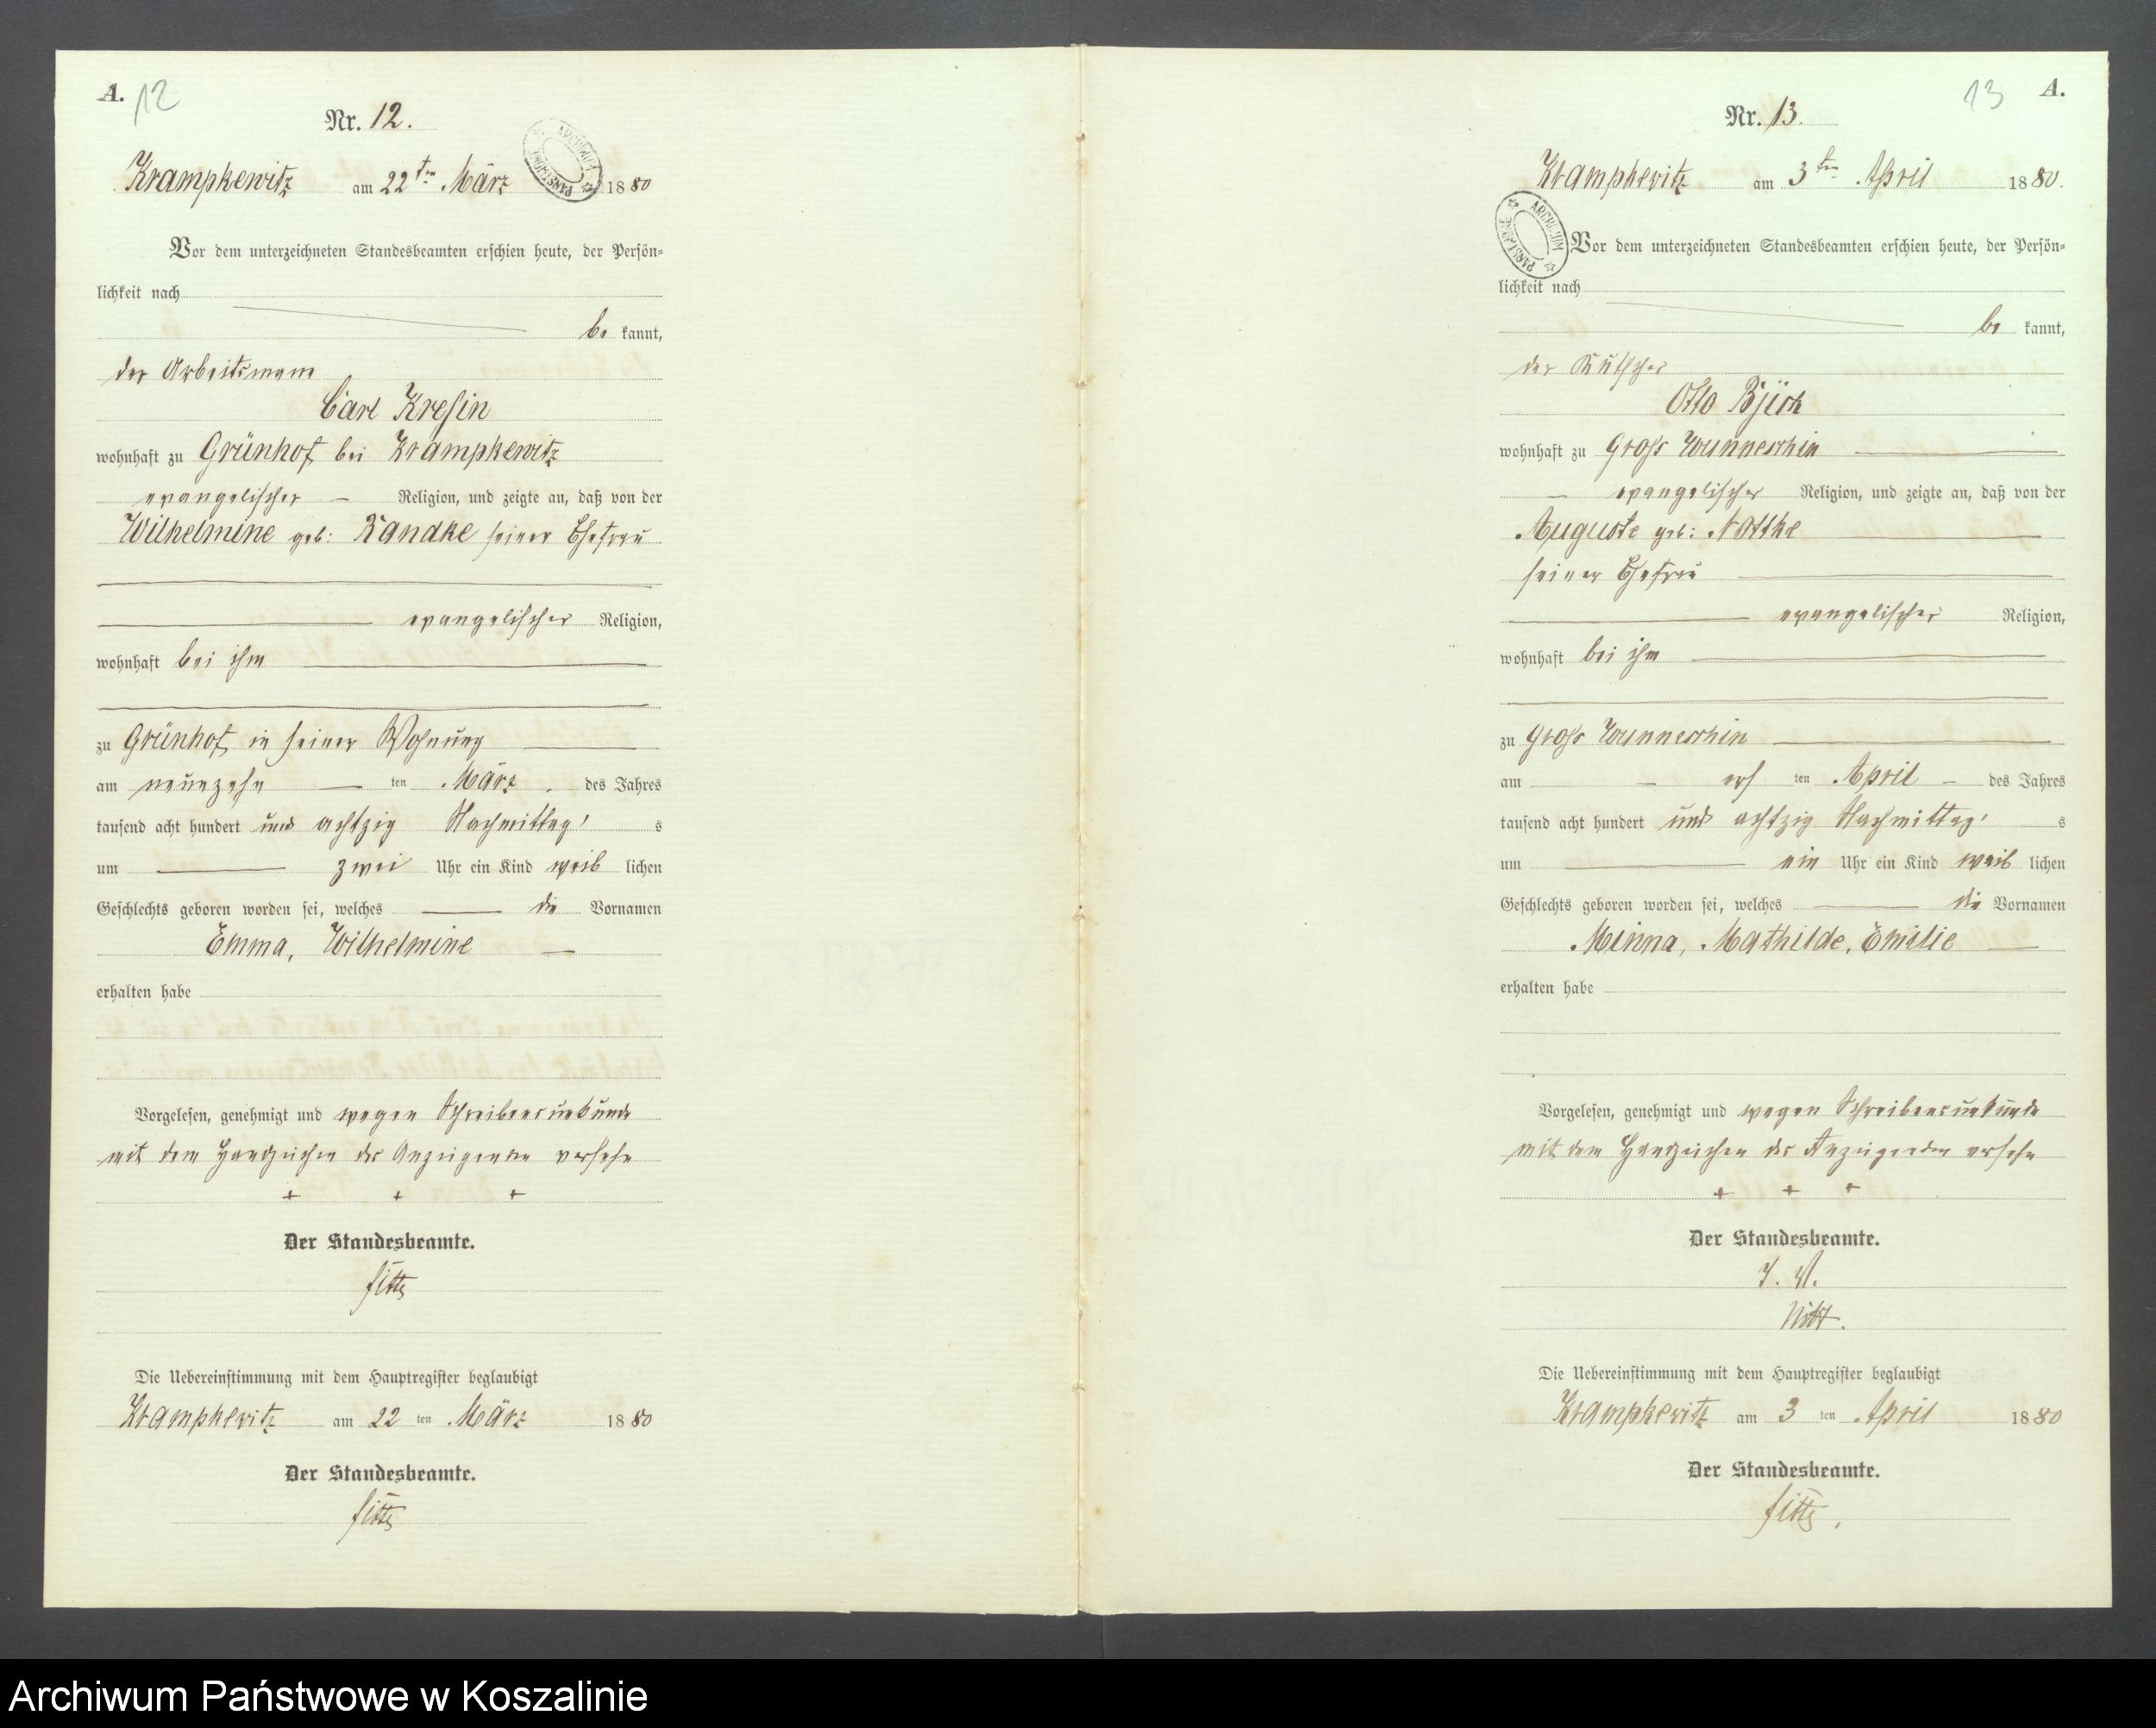 A. 12
Nr. 12.
Krampkewitz am 22ten März 1880
ARCHIWUM PAŃSTWOWE
Vor dem unterzeichneten Standesbeamten erschien heute, der Persön-
lichkeit nach
be kannt,
der Arbeitsmann
Carl Kresin
wohnhaft zu Grünhof bei Krampkewitz
evangelischer — Religion, und zeigte an, daß von der
Wilhelmine geb: Randke seiner Ehefrau
evangelischer Religion,
wohnhaft bei ihm
zu Grünhof in seiner Wohnung
am neunzehn — ten März. des Jahres
tausend acht hundert und achtzig Nachmittag's
um — zwei Uhr ein Kind weib lichen
Geschlechts geboren worden sei, welches — die Vornamen
Emma, Wilhelmine —
erhalten habe
Vorgelesen, genehmigt und wegen Schreibensunkunde
mit dem Handzeichen des Anzeigenden versehn
+ + +
Der Standesbeamte.
Die Uebereinstimmung mit dem Hauptregister beglaubigt
Krampkewitz am 22 ten März 1880
Der Standesbeamte.
13 A.
Nr. 13.
Krampkewitz am 3ten April 1880.
ARCHIWUM PAŃSTWOWE
Vor dem unterzeichneten Standesbeamten erschien heute, der Persön-
lichkeit nach
be kannt,
der Kutscher
Otto
wohnhaft zu Gross Wunneschin
— evangelischer Religion, und zeigte an, daß von der
Auguste geb: Nottke
seiner Ehefrau
evangelischer Religion,
wohnhaft bei ihm
zu Gross Wunneschin
am — ers ten April — des Jahres
tausend acht hundert und achtzig Nachmittag's
um — ein Uhr ein Kind weib lichen
Geschlechts geboren worden sei, welches — die Vornamen
Minna, Mathilde, Emilie —
erhalten habe
Vorgelesen, genehmigt und wegen Schreibensunkunde
mit dem Handzeichen des Anzeigenden versehn
+ + +
Der Standesbeamte.
I. V.
Die Uebereinstimmung mit dem Hauptregister beglaubigt
Krampkewitz am 3 ten April 1880
Der Standesbeamte.
Archiwum Państwowe w Koszalinie